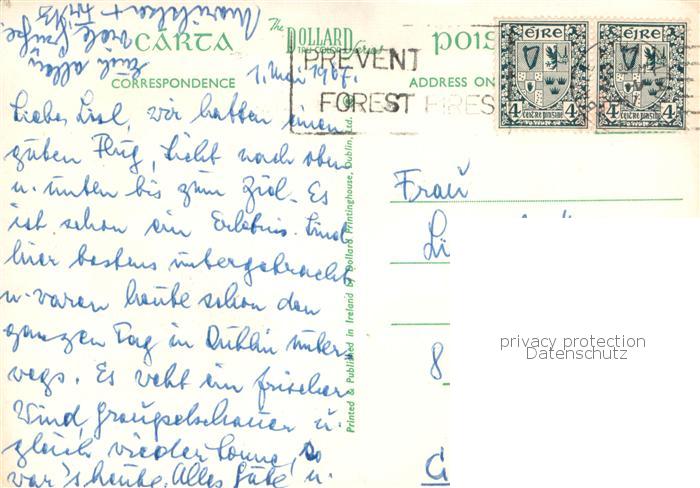 CÁRTA
The DOLLARD
TRU COLOR Card
CORRESPONDENCE
ADDRESS ON
PREVENT
FOREST FIRES
ÉIRE
4 4
ÉIRE
4 4
1. Mai 1967.
Liebes Lisl, wir hatten einen
guten Flug, Sicht nach oben
u. unten bis zum Ziel. Es
ist schon ein Erlebnis. Sind
hier bestens untergebracht
u. waren heute schon den
ganzen Tag in Dublin unter-
wegs. Es weht ein frischer
Wind, Graupelschauer u.
gleich wieder Sonne, so
war's heute. Alles Gute u.
Euch allen
viele Grüße
Printed & Published in Ireland by Dollard Printinghouse, Dublin, Ltd.
Frau
Li
8
G
privacy protection
Datenschutz